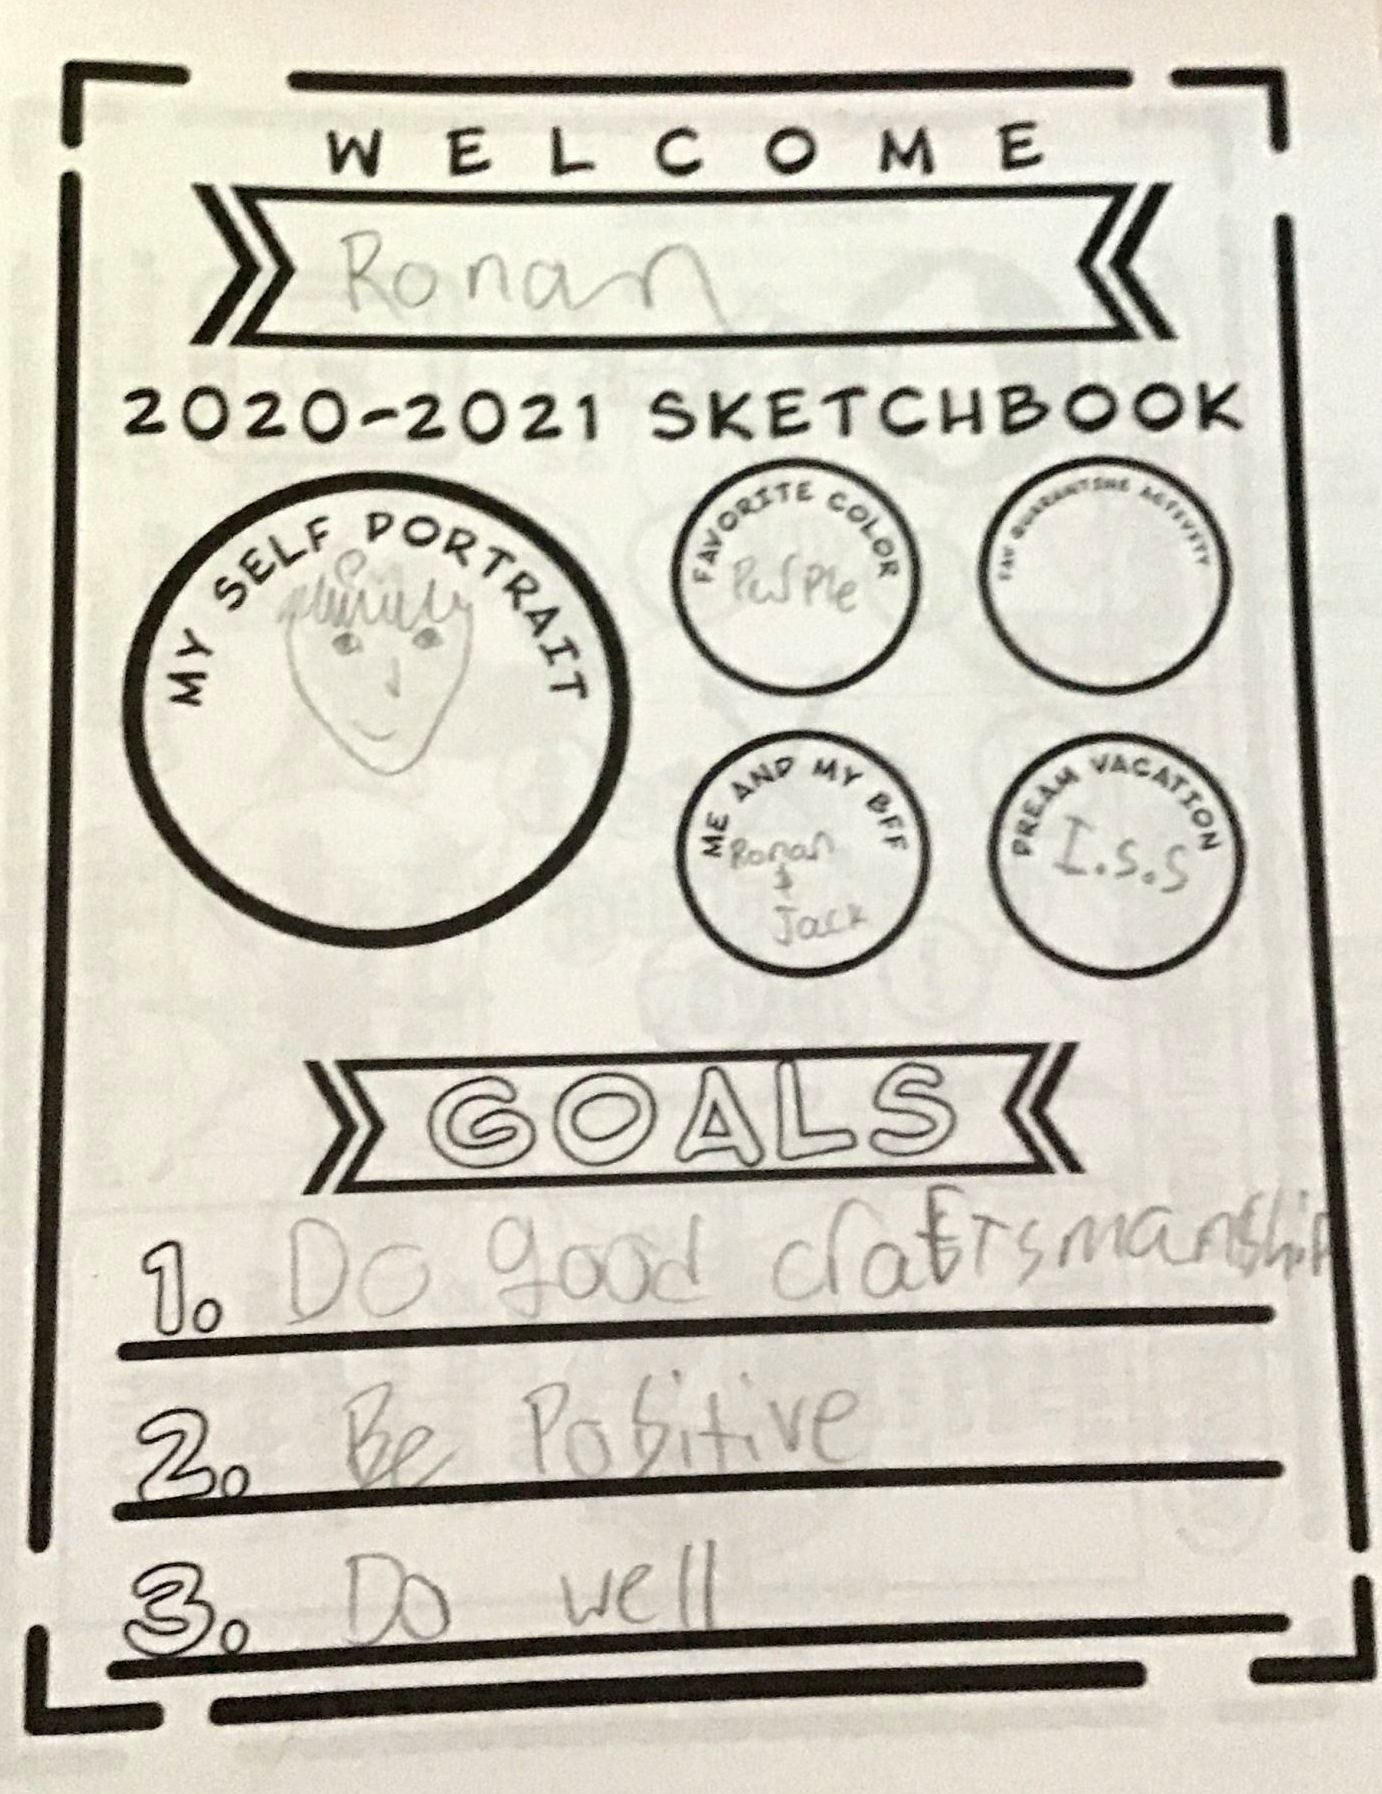 WELCOME
Ronan
2020-2021 SKETCHBOOK
MY SELF PORTRAIT
FAVORITE COLOR
Purple
FAV QUARANTINE ACTIVITY
ME AND MY BFF
Ronan
+
Jack
DREAM VACATION
I.S.S
GOALS
1. Do good craftsmanship
2. Be Positive
3. Do well